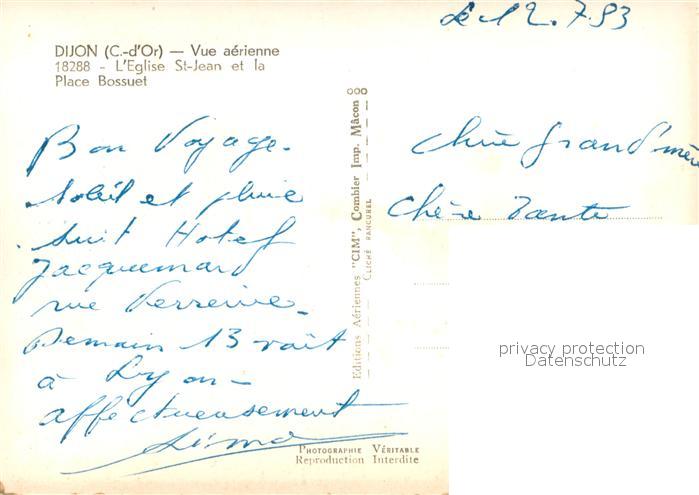 de 12.7.53
DIJON (C.-d'Or) — Vue aérienne
18288 - L'Eglise St-Jean et la
Place Bossuet
Bon Voyage -
Soleil et pluie
suit Hotel
Jacquemard
rue Verrerie -
Demain 13 août
à Lyon -
affectueusement
Chère Grand'mère
Chère Tante
Editions Aériennes "CIM", Combier Imp. Mâcon
CLICHÉ RANCUREL
PHOTOGRAPHIE VÉRITABLE
Reproduction Interdite
privacy protection
Datenschutz